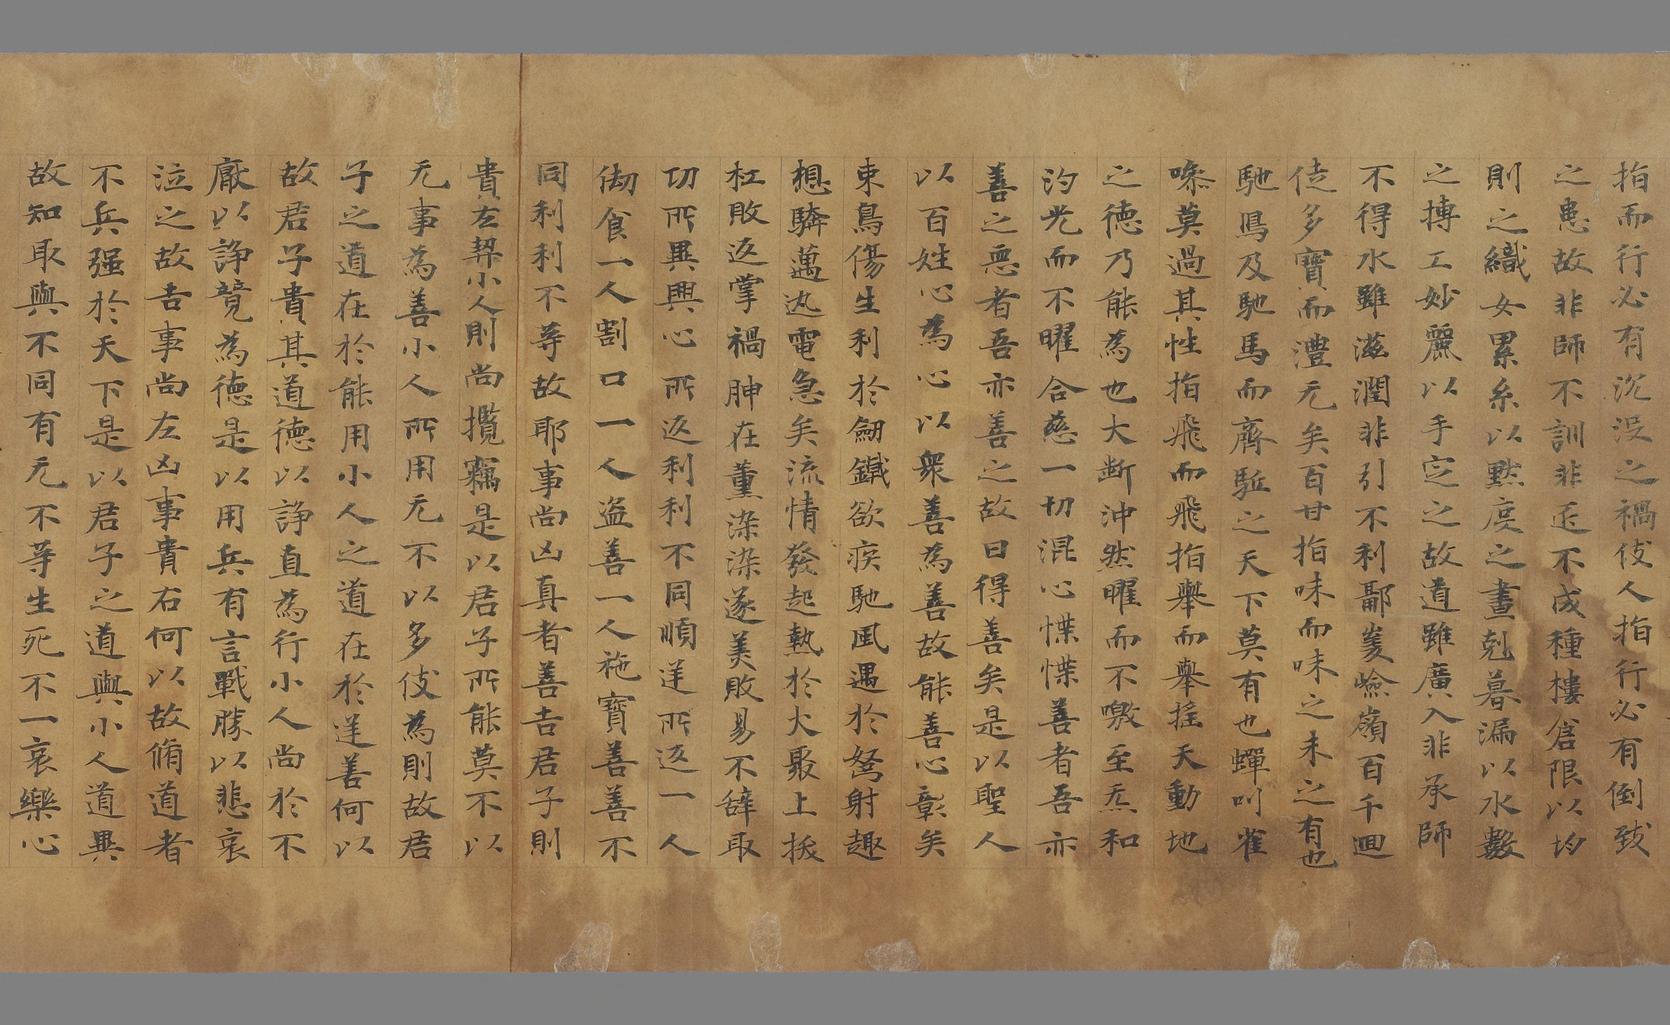 指而行必有沉没之禍伎人指行必有倒致
之患故非師不訓非匠不成種樓倉限以均
則之織女累糸以黙度之晝剋暮漏以水數
之搏工妙麗以手定之故道雖廣入非承師
不得水雖滋潤非引不利鄙嶘嶮嶺百千廻
徒多寶而澧无矣百甘指味而味之未之有也
馳鴈及馳馬而齊駈之天下莫有也蟬叫雀
喿莫過其性指飛而飛指舉而舉摇天動地
之徳乃能為也大斷沖然曜而不噭至炁和
汋光而不曜合慈一切混心惵惵善者吾亦
善之惡者吾亦善之故曰得善矣是以聖人
以百姓心為心以衆善為善故能善心彰矣
束鳥傷生利於劒鐵欲疾馳風遇於駑射趣
想騎邁迯電急矣流情發起熱於火聚上拔
杠敗返掌禍胂在薰染染遂美敗易不辞取
切所異興心所返利利不同順逆所返一人
刼食一人割口一人盗善一人施寶善善不
同利利不等故耶事尚凶真者善吉君子則
貴左契小人則尚攬竊是以君子所能莫不以
无事為善小人所用无不以多伎為則故君
子之道在於能用小人之道在於逆善何以
故君子貴其道徳以諍直為行小人尚於不
厳以諍競為徳是以用兵有言戰勝以悲哀
泣之故吉事尚左凶事貴右何以故脩道者
不兵强於天下是以君子之道與小人道異
故知取與不同有无不等生死不一哀樂心